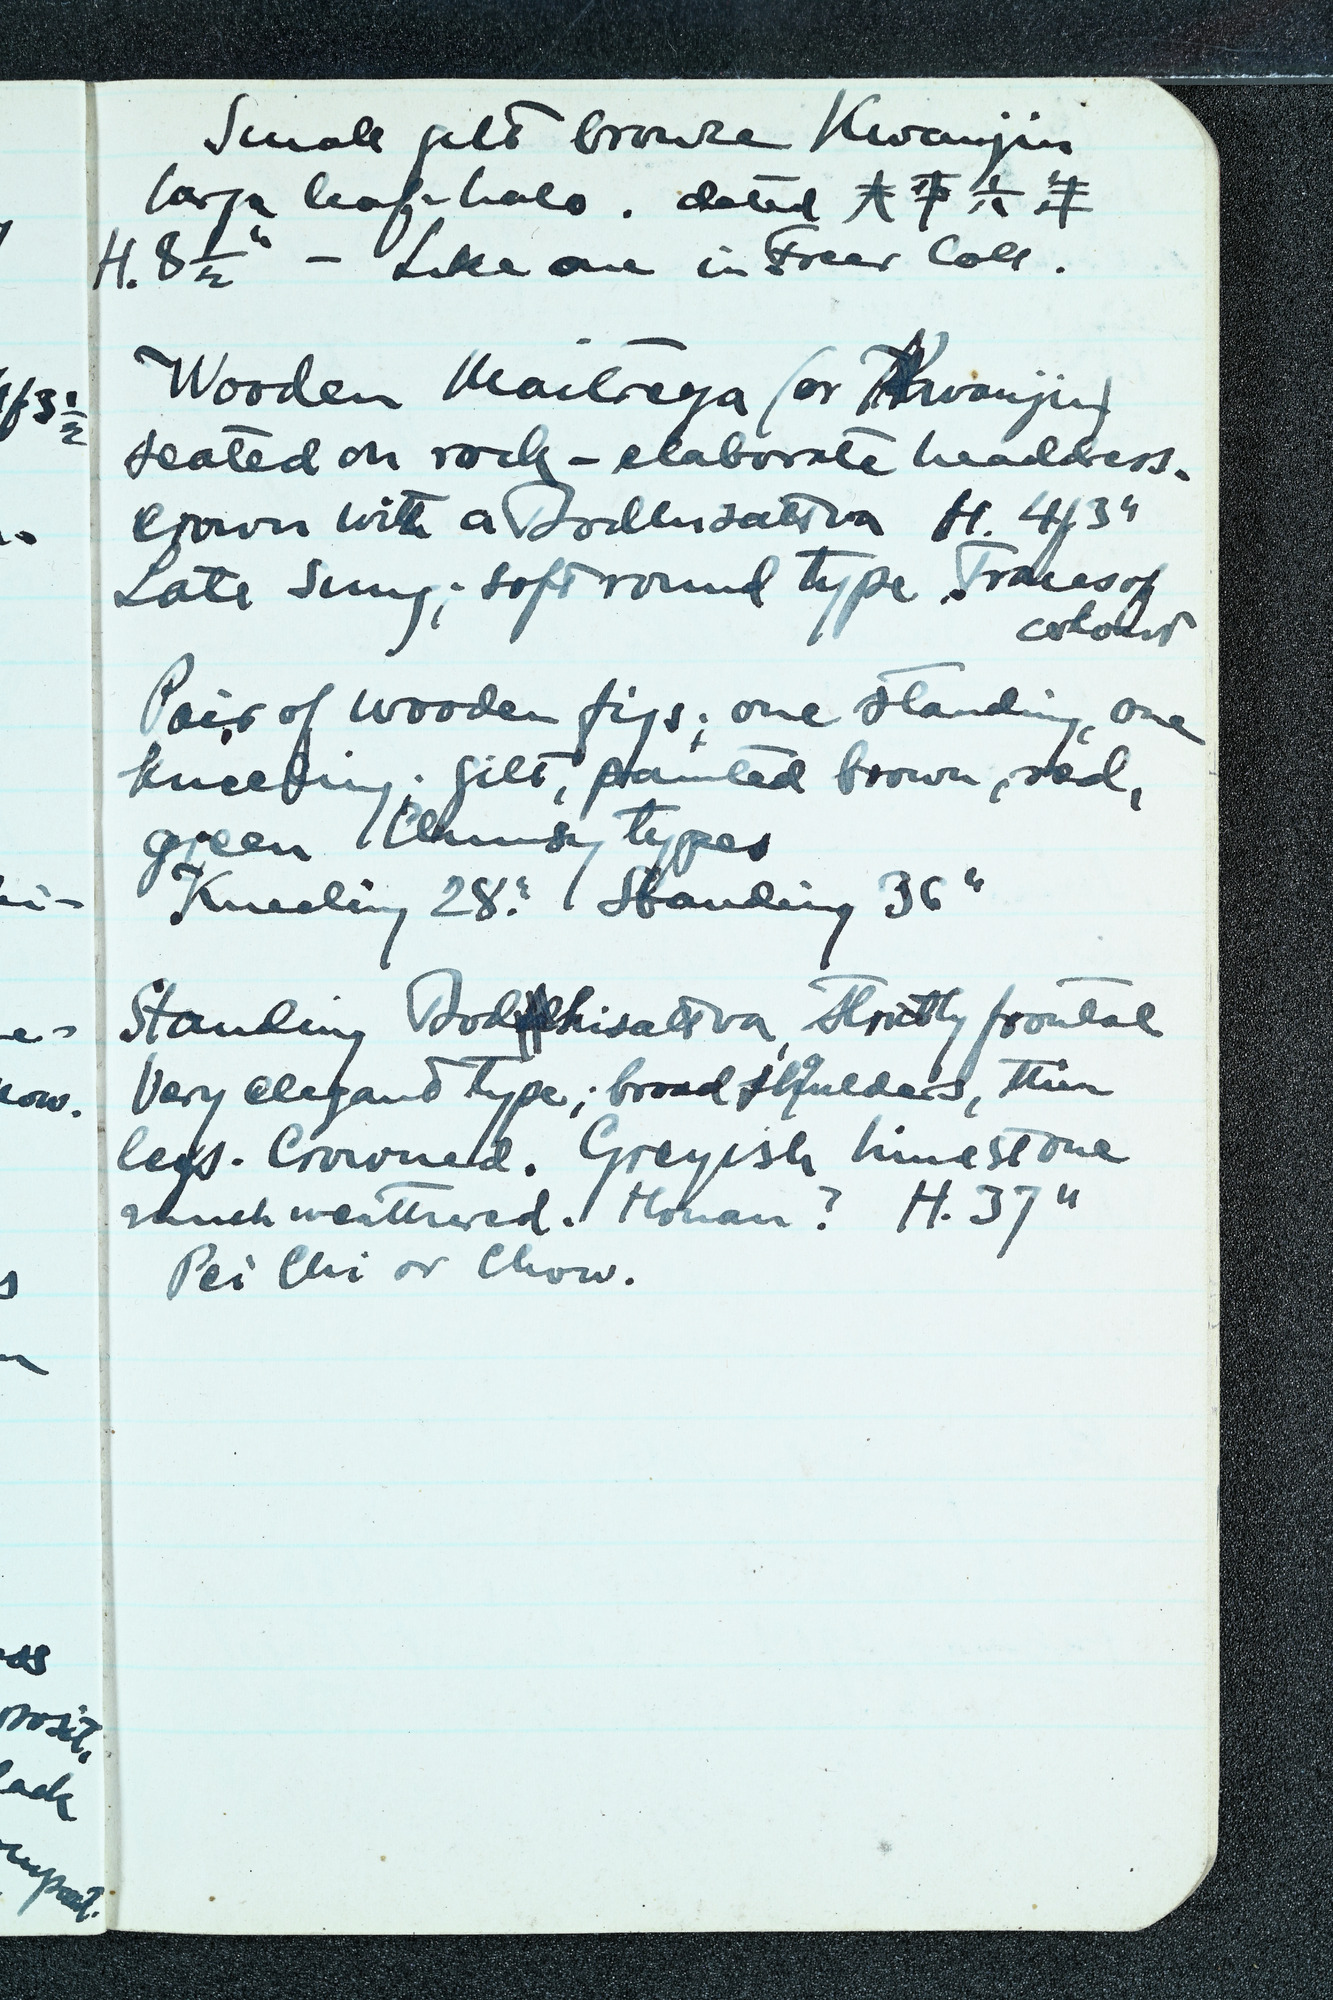 Small gilt bronze Kwanjin
large leaf-halo. dated 太平六年
H. 8½" – Like one in Freer Coll.
Wooden Maitreya (or Kwanjin)
seated on rock – elaborate headdress.
Crown with a Bodhisattva H. 4f3"
Late Sung; soft round type. Traces of
colour
Pair of wooden figs; one standing, one
kneeling; gilt, painted brown, red,
green Clumsy types
Kneeling 28". Standing 36"
Standing Bodhisattva, strictly frontal
Very elegant type; broad shoulders, thin
legs. Crowned. Greyish limestone
much weathered. Honan? H. 37"
Pei Chi or Chow.
4f3½
how.
posit.